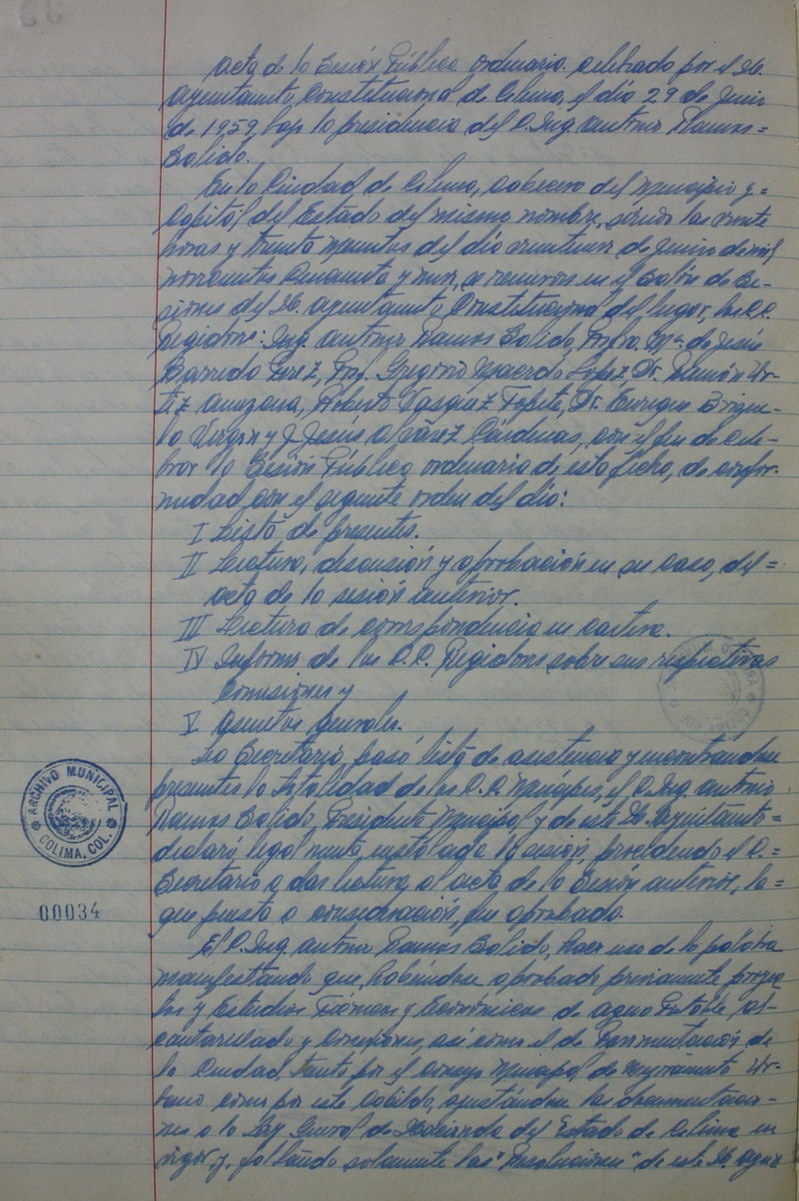 Acta de la Sesión Pública ordinaria celebrada por el H.
Ayuntamiento Constitucional de Colima, el día 29 de Junio
de 1959, bajo la presidencia del C. Ing. Antonio Ramos=
Salido.
En la Ciudad de Colima, Cabecera del Municipio y=
Capital del Estado del mismo nombre, siendo las veinte
horas y treinta minutos del día veintinueve de Junio de mil
novecientos cincuenta y nueve, se reunieron en el Salón de Se-
siones del H. Ayuntamiento Constitucional del lugar, los C.C.
Regidores: Ing. Antonio Ramos Salido, Profra. Ma. de Jesús
Barreda Pérez, Prof. Gregorio Macedo López, Dr. Ramón Ur-
tiz Amezcua, Roberto Vázquez Topete, Dr. Enrique Brizue-
la Virgen y J. Jesús Alvarez Cárdenas, con el fin de cele-
brar la Sesión Pública ordinaria de esta fecha, de confor-
midad con el siguiente orden del día:
I Lista de presentes.
II Lectura, discusión y aprobación en su caso, del=
acta de la sesión anterior.
III Lectura de correspondencia en cartera.
IV Informe de los C.C. Regidores sobre sus respectivas
Comisiones y
V Asuntos generales.
La Secretaría, pasó lista de asistencia y encontrándose
presentes la totalidad de los C.C. Munícipes, el C. Ing. Antonio
Ramos Salido, Presidente Municipal y de este H. Ayuntamiento=
declaró legalmente instalada la sesión, procediendo el C.=
Secretario a dar lectura, al acta de la Sesión anterior, la=
que puesta a consideración, fue aprobada.
El C. Ing. Antonio Ramos Salido, hacer uso de la palabra
manifestando que, habiéndose aprobado previamente proyec
tos y Estudios Técnicos y Económicos de agua Potable al-
cantarillado y Conexiones, así como el de Pavimentación de
la Ciudad, tanto por el Consejo Municipal de Mejoramiento Ur-
bano como por este Cabildo, ajustándose las documentacio-
nes a la Ley General de Hacienda del Estado de Colima en
vigor y, faltando solamente las "Resoluciones" de este H. Ayun
ARCHIVO MUNICIPAL
COLIMA, COL.
00034